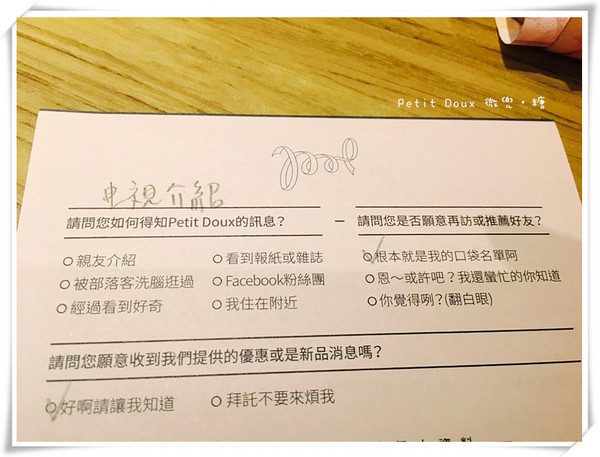 Petit Doux 微兜・糖
電視介紹
請問您如何得知Petit Doux的訊息？
親友介紹
看到報紙或雜誌
被部落客洗腦逛過
Facebook粉絲團
經過看到好奇
我住在附近
請問您是否願意再訪或推薦好友？
根本就是我的口袋名單阿
恩～或許吧？我還蠻忙的你知道
你覺得咧？(翻白眼)
請問您願意收到我們提供的優惠或是新品消息嗎？
好啊請讓我知道
拜託不要來煩我